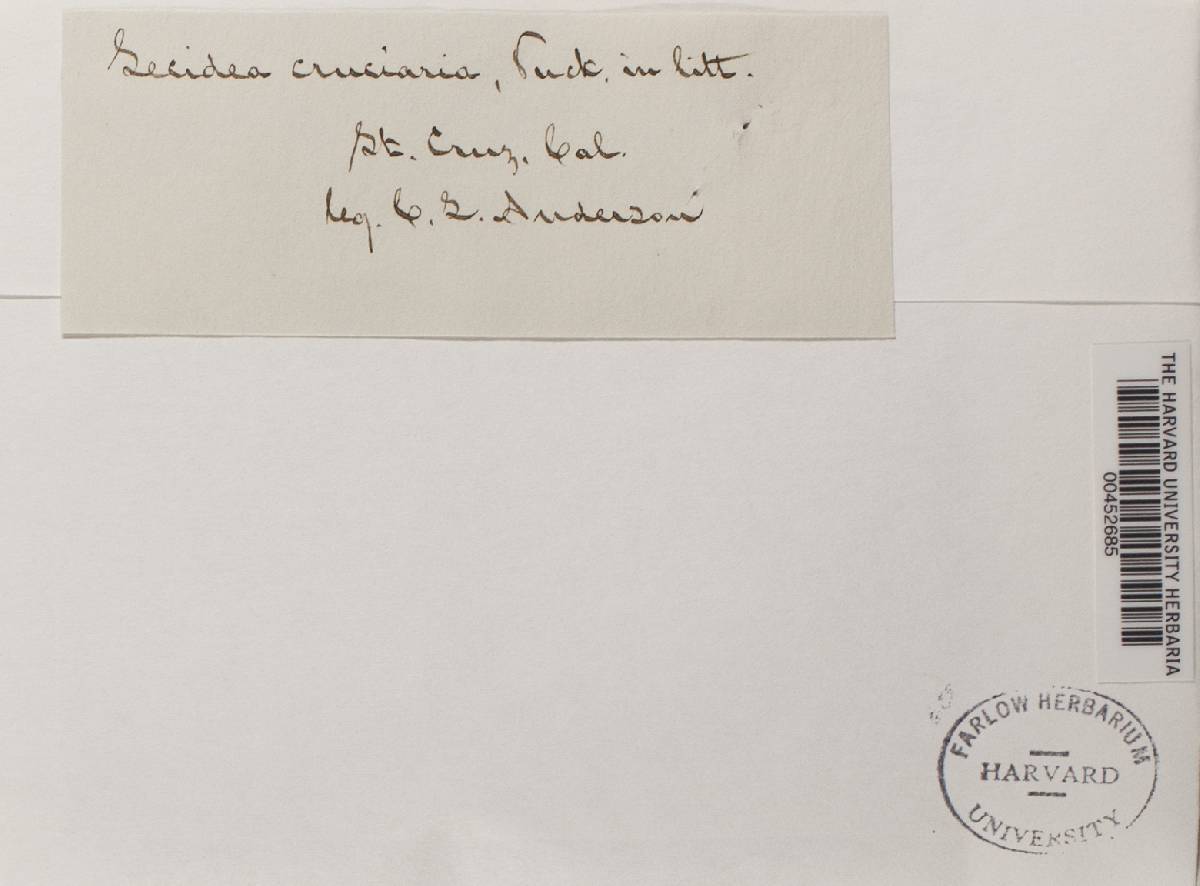 Lecidea cruciaria, Tuck. in litt.
St. Cruz, Cal.
leg. C. L. Anderson
THE HARVARD UNIVERSITY HERBARIA
00452685
FARLOW HERBARIUM
HARVARD
UNIVERSITY